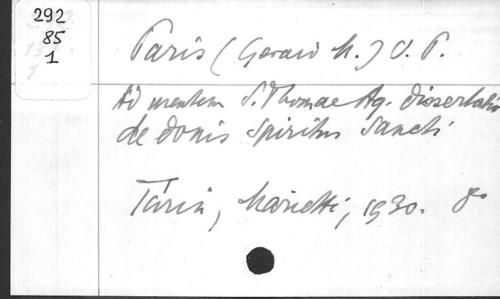 292
85
1
Paris (Gerard M.) O. P.
Ad mentem S. Thomae Aq. dissertatio
de donis Spiritus Sancti
Turin, Marietti, 1930. 8o